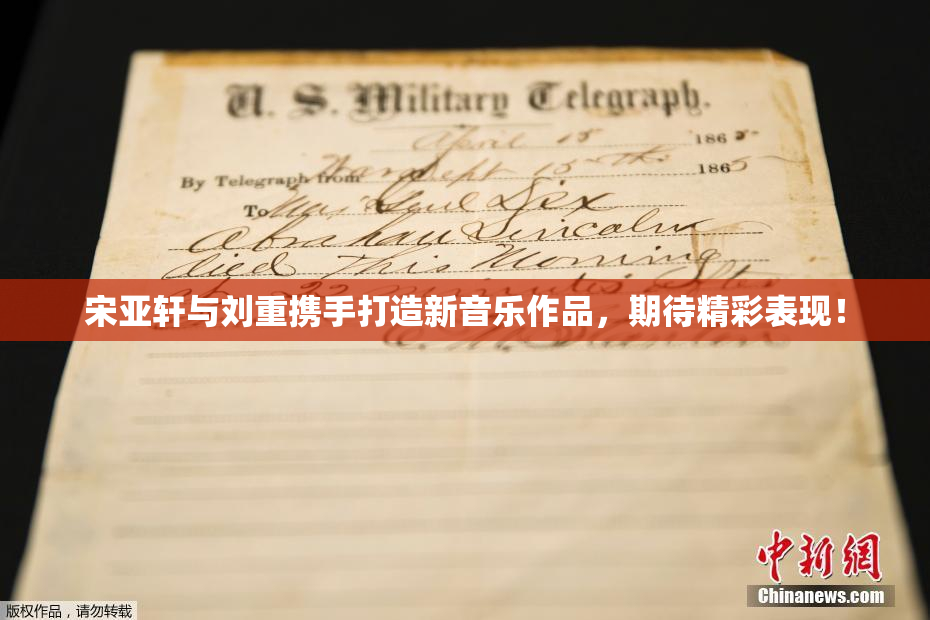 U. S. Military Telegraph.
April 15 1865.
By Telegraph from War Dept 15th 1865
To Maj Genl Dix
Abraham Lincoln
died This Morning
at 22 minutes after
宋亚轩与刘重携手打造新音乐作品，期待精彩表现！
E. M. Stanton
中新网
Chinanews.com
版权作品，请勿转载